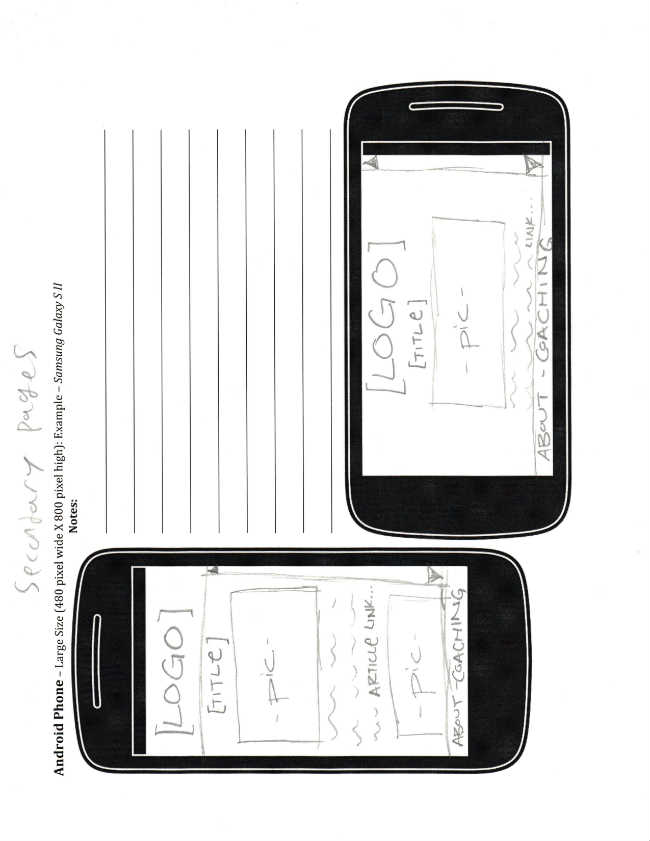 Secondary pages
Android Phone – Large Size [480 pixel wide X 800 pixel high]: Example – Samsung Galaxy S II
Notes:
[LOGO]
[TITLE]
- pic -
ARTICLE LINK...
- pic -
ABOUT - COACHING
[LOGO]
[TITLE]
- pic -
LINK...
ABOUT - COACHING